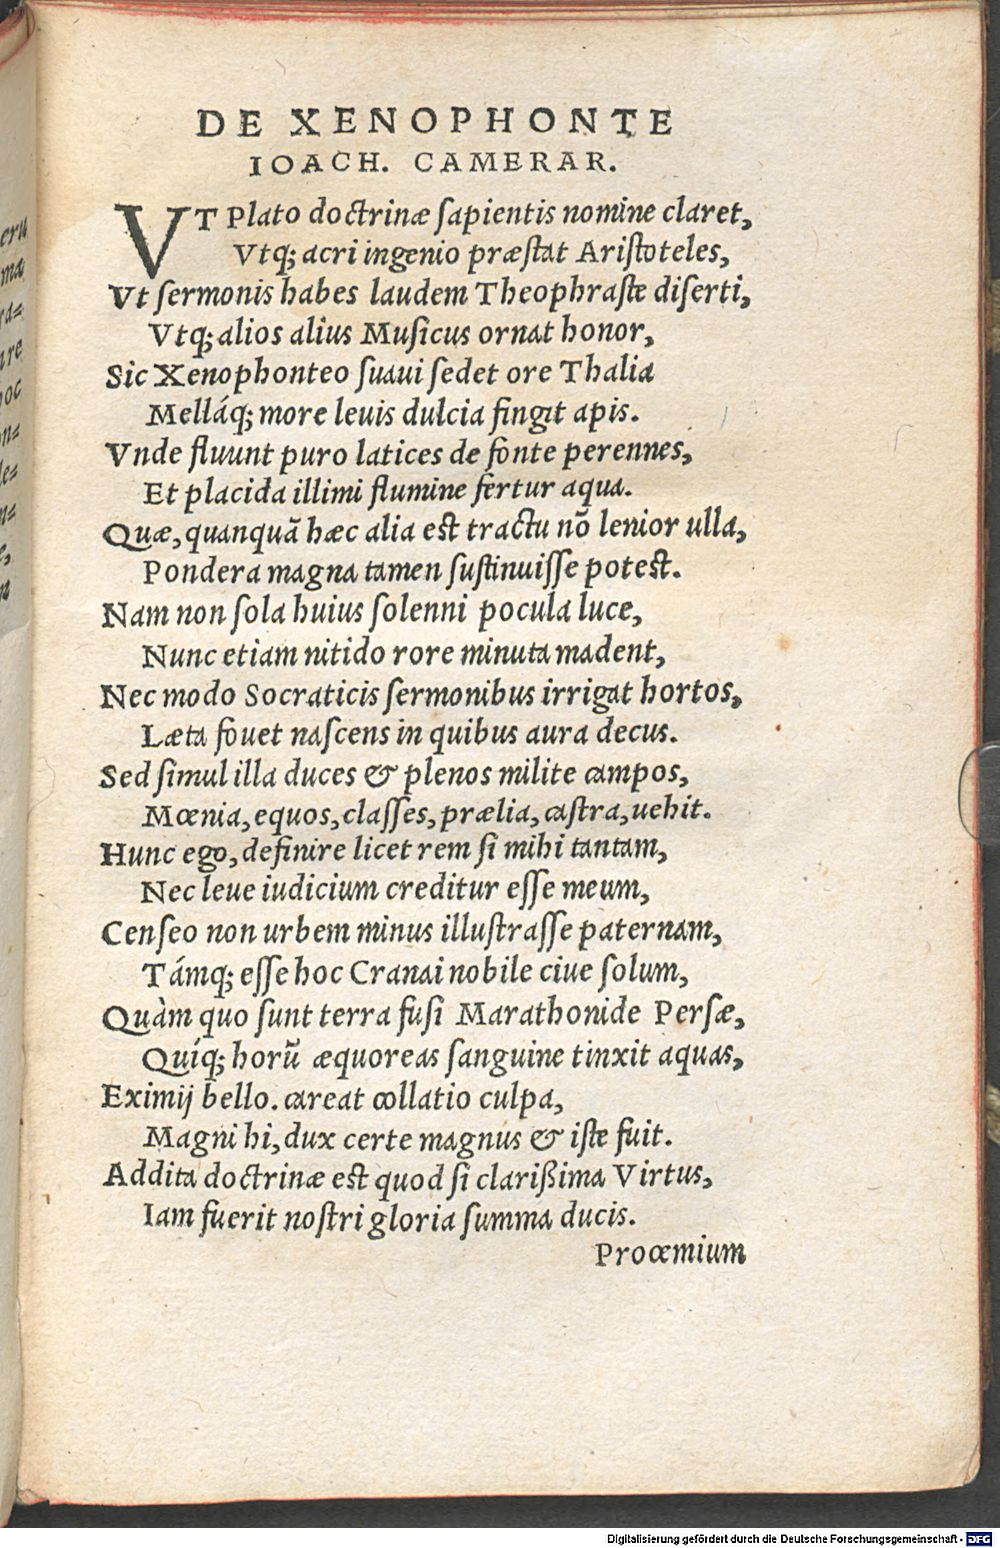 DE XENOPHONTE
IOACH. CAMERAR.
VT Plato doctrinæ ſapientis nomine claret,
Vtq; acri ingenio præſtat Ariſtoteles,
Vt ſermonis habes laudem Theophraſte diſerti,
Vtq; alios alius Muſicus ornat honor,
Sic Xenophonteo ſuaui ſedet ore Thalia
Melláq; more leuis dulcia fingit apis.
Vnde fluunt puro latices de fonte perennes,
Et placida illimi flumine fertur aqua.
Quæ, quanquã hæc alia est tractu nõ lenior ulla,
Pondera magna tamen ſuſtinuiſſe potest.
Nam non ſola huius ſolenni pocula luce,
Nunc etiam nitido rore minuta madent,
Nec modo Socraticis ſermonibus irrigat hortos,
Læta fouet naſcens in quibus aura decus.
Sed ſimul illa duces & plenos milite campos,
Mœnia, equos, claſſes, prælia, caſtra, uehit.
Hunc ego, definire licet rem ſi mihi tantam,
Nec leue iudicium creditur eſſe meum,
Cenſeo non urbem minus illuſtraſſe paternam,
Támq; eſſe hoc Cranai nobile ciue ſolum,
Quàm quo ſunt terra fuſi Marathonide Perſæ,
Quíq; horũ æquoreas ſanguine tinxit aquas,
Eximij bello. careat collatio culpa,
Magni hi, dux certe magnus & iſte fuit.
Addita doctrinæ est quod ſi clarißima Virtus,
Iam fuerit noſtri gloria ſumma ducis.
Proœmium
eru
ma
ra=
ure
hoc
on=
le=
n=
e,
n
Digitalisierung gefördert durch die Deutsche Forschungsgemeinschaft - DFG